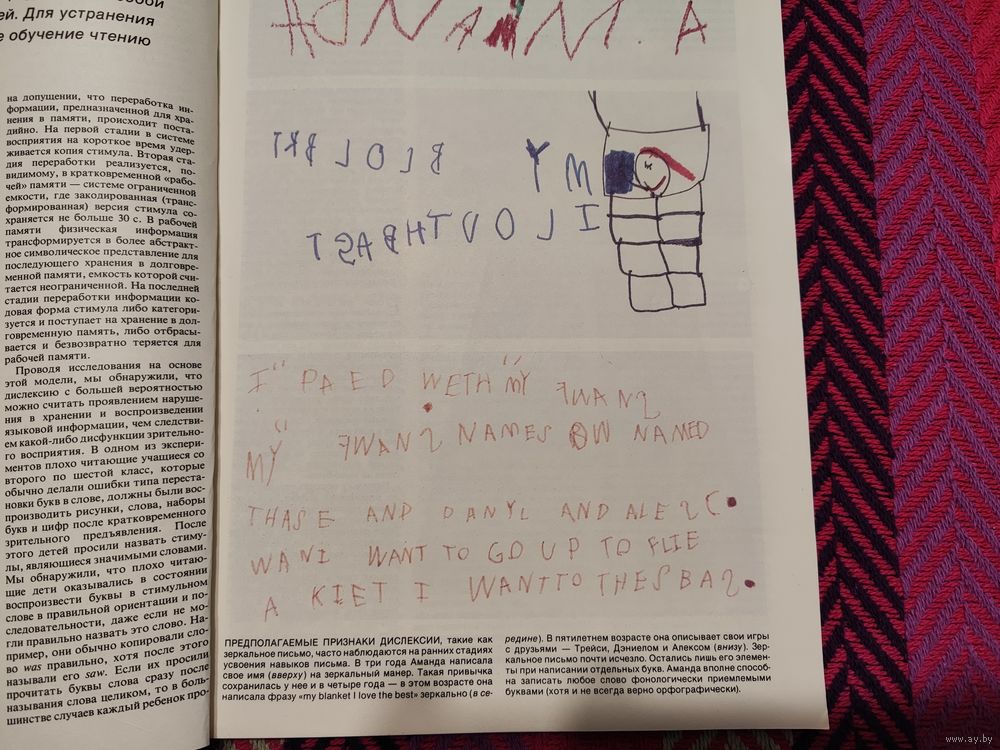 особой
ей. Для устранения
е обучение чтению
на допущении, что переработка ин-
формации, предназначенной для хра-
нения в памяти, происходит поста-
дийно. На первой стадии в системе
восприятия на короткое время удер-
живается копия стимула. Вторая ста-
дия переработки реализуется, по-
видимому, в кратковременной «рабо-
чей» памяти — системе ограниченной
емкости, где закодированная (транс-
формированная) версия стимула со-
храняется не больше 30 с. В рабочей
памяти физическая информация
трансформируется в более абстракт-
ное символическое представление для
последующего хранения в долговре-
менной памяти, емкость которой счи-
тается неограниченной. На последней
стадии переработки информации ко-
довая форма стимула либо категори-
зуется и поступает на хранение в дол-
говременную память, либо отбрасы-
вается и безвозвратно теряется для
рабочей памяти.
Проводя исследования на основе
этой модели, мы обнаружили, что
дислексию с большей вероятностью
можно считать проявлением наруше-
ния в хранении и воспроизведении
языковой информации, чем следстви-
ем какой-либо дисфункции зрительно-
го восприятия. В одном из экспери-
ментов плохо читающие учащиеся со
второго по шестой класс, которые
обычно делали ошибки типа переста-
новки букв в слове, должны были вос-
производить рисунки, слова, наборы
букв и цифр после кратковременного
зрительного предъявления. После
этого детей просили назвать стиму-
лы, являющиеся значимыми словами.
Мы обнаружили, что плохо читаю-
щие дети оказывались в состоянии
воспроизвести буквы в стимульном
слове в правильной ориентации и по-
следовательности, даже если не мо-
гли правильно назвать это слово. На-
пример, они обычно копировали сло-
во was правильно, хотя после этого
называли его saw. Если их просили
прочитать буквы слова сразу после
называния слова целиком, то в боль-
шинстве случаев каждый ребенок про-
AMANDA
MY
I LOVTHBAST
I PAED WETH MY FWANS
MY FWANS NAMES OW NAMED
THASE AND DANYL AND ALESC.
WAN I WANT TO GO UP TO FLIE
A KIET I WANTTO THESBAS.
ПРЕДПОЛАГАЕМЫЕ ПРИЗНАКИ ДИСЛЕКСИИ, такие как
зеркальное письмо, часто наблюдаются на ранних стадиях
усвоения навыков письма. В три года Аманда написала
свое имя (вверху) на зеркальный манер. Такая привычка
сохранилась у нее и в четыре года — в этом возрасте она
написала фразу «my blanket I love the best» зеркально (в се-
редине). В пятилетнем возрасте она описывает свои игры
с друзьями — Трейси, Дэниелом и Алексом (внизу). Зер-
кальное письмо почти исчезло. Остались лишь его элемен-
ты при написании отдельных букв. Аманда вполне способ-
на записать любое слово фонологически приемлемыми
буквами (хотя и не всегда верно орфографически).
www.ay.by